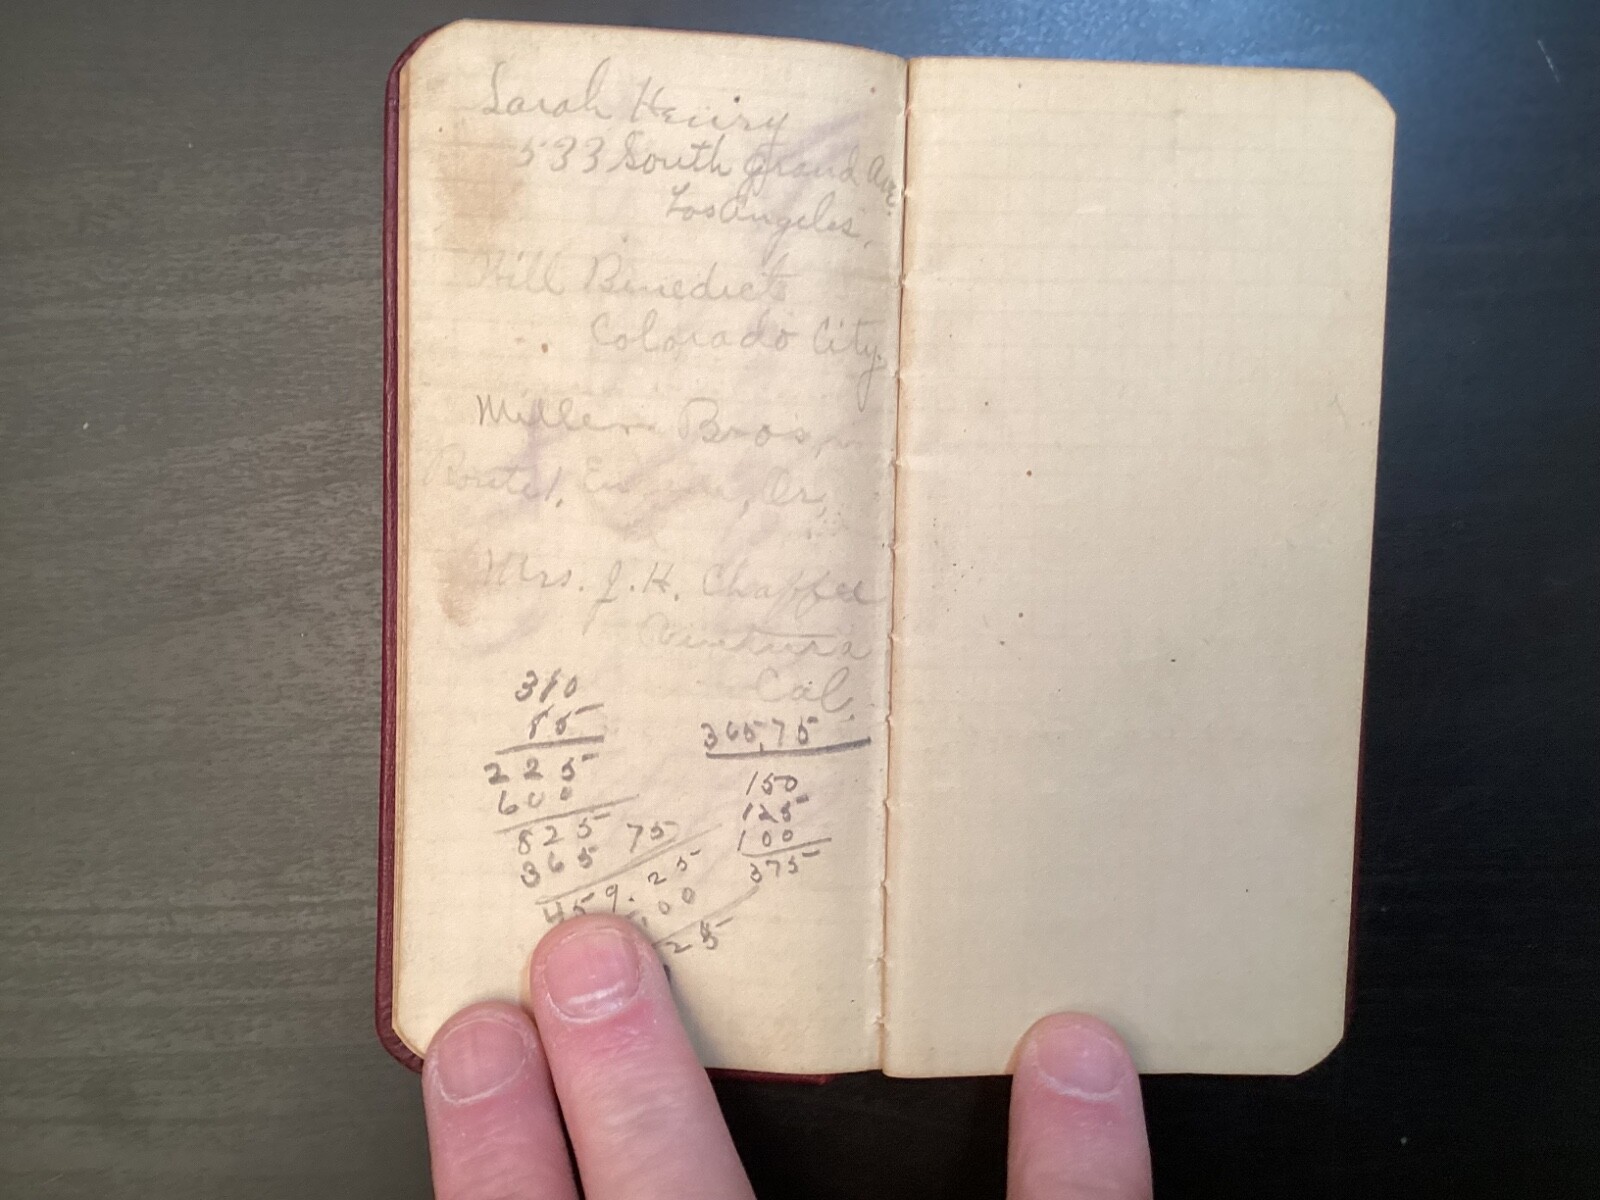 Sarah Henry
533 South Grand Ave.
Los Angeles.
Will Benedict
Colorado City.
Miller Bros.
Route 1, Eugene, Or.
Mrs. J. H. Chaffee
Ventura
Cal.
310
85
225
600
825
365 75
459.25
.00
25
365,75
150
125
100
375